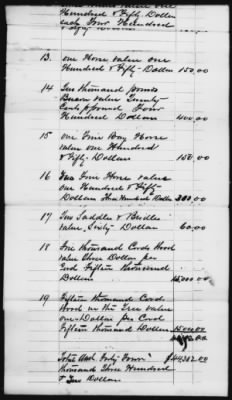 Hundred & Fifty Dollars
each Four Hundred
13. one Horse value one
Hundred & Fifty Dollars 150.00
14 Two thousand pounds
Bacon value Twenty
Cents pr pound Four
Hundred Dollars 400.00
15 one fine Bay Horse
value one Hundred
& Fifty Dollars 150.00
16 Two fine Horse value
one Hundred & Fifty
Dollars Three Hundred Dollars 300.00
17 Two Saddles & Bridles
value, Sixty Dollars 60.00
18 Five thousand Cords Wood
value Three Dollars per
Cord Fifteen thousand
Dollars 15,000.00
19 Fifteen thousand Cord
Wood in the Tree value
one Dollar per Cord
Fifteen thousand Dollars 15,000.00
Total Amt Forty Four $44302.00
thousand Three Hundred
& Two Dollars